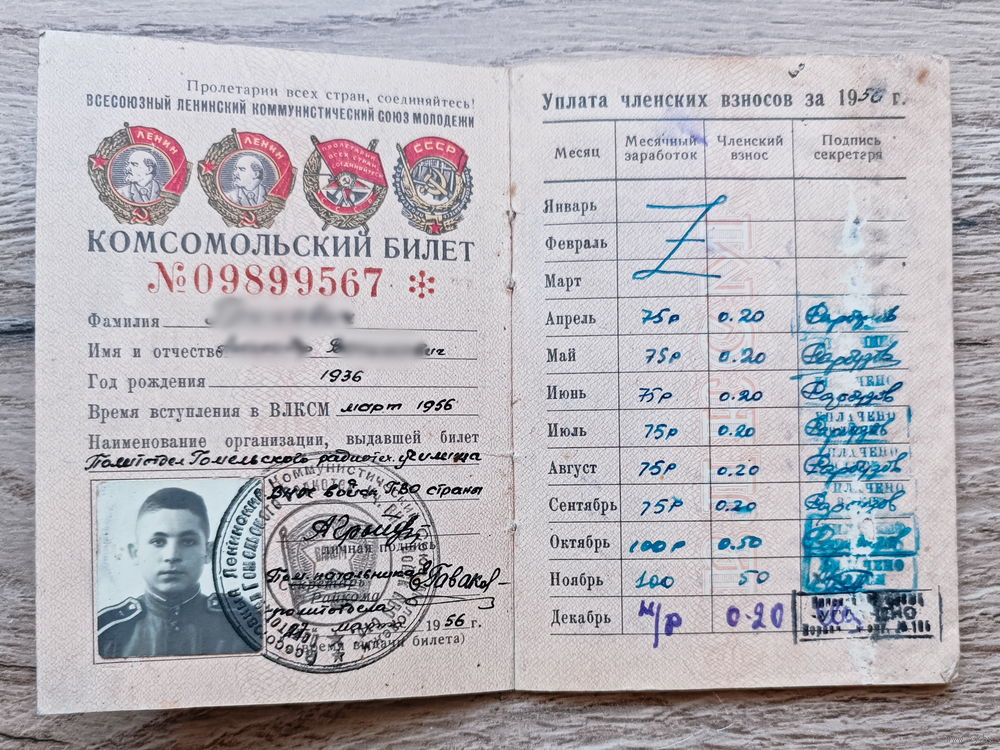 Пролетарии всех стран, соединяйтесь!
ВСЕСОЮЗНЫЙ ЛЕНИНСКИЙ КОММУНИСТИЧЕСКИЙ СОЮЗ МОЛОДЕЖИ
ЛЕНИН
ЛЕНИН
ПРОЛЕТАРИИ ВСЕХ СТРАН СОЕДИНЯЙТЕСЬ
СССР
КОМСОМОЛЬСКИЙ БИЛЕТ
№09899567
Фамилия
Имя и отчество
Год рождения 1936
Время вступления в ВЛКСМ март 1956
Наименование организации, выдавшей билет
Политотдел Гомельского радиотех. училища
войск ПВО страны
личная подпись
Пом. начальника
Секретарь
Райкома
политотдела
марта 1956 г.
(время выдачи билета)
Уплата членских взносов за 1956 г.
Месяц Месячный заработок Членский взнос Подпись секретаря
Январь
Февраль
Март
Апрель 75р 0.20
Май 75р 0.20
Июнь 75р 0.20
Июль 75р 0.20
Август 75р 0.20
Сентябрь 75р 0.20
Октябрь 100р 0.50
Ноябрь 100 50
Декабрь 0.20